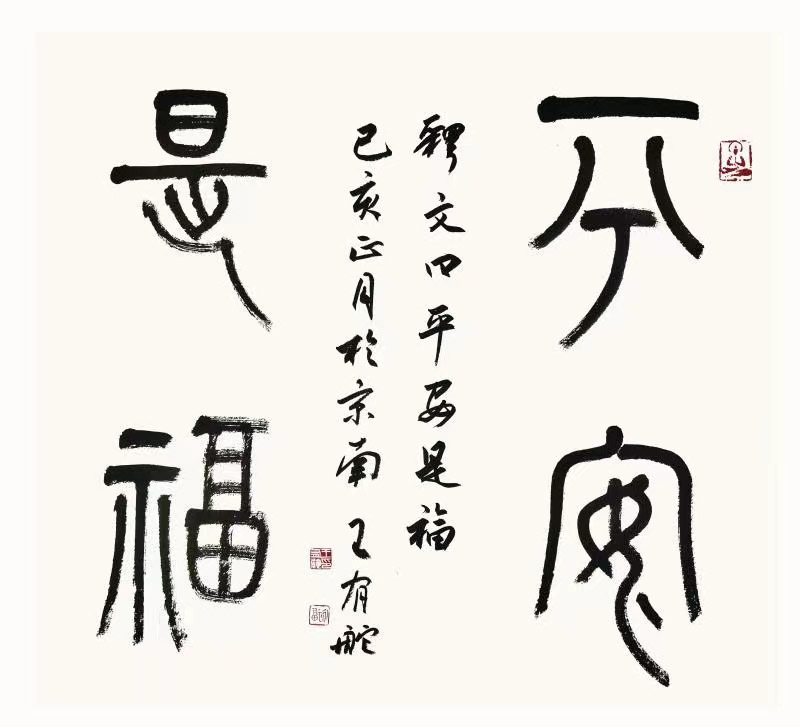 平安
是福
释文曰平安是福
己亥正月於京南王有舵